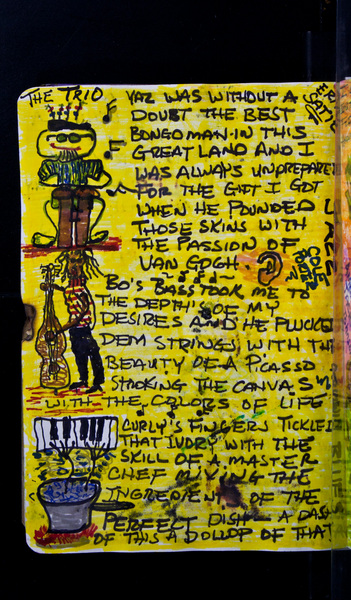 THE TRIO
YAZ WAS WITHOUT A
DOUBT THE BEST
BONGOMAN IN THIS
GREAT LAND AND I
WAS ALWAYS UNPREPARE
FOR THE GIFT I GOT
WHEN HE POUNDED
THOSE SKINS WITH
THE PASSION OF
VAN GOGH
BO'S BASS TOOK ME TO
THE DEPTH'S OF MY
DESIRES AND HE PLUCKED
DEM STRINGS WITH TH
BEAUTY OF A PICASSO
STROKING THE CANVAS
WITH THE COLORS OF LIFE
CURLY'S FINGERS TICKLE
THAT IVORY WITH THE
SKILL OF A MASTER
CHEF MIXING THE
INGREDIENT OF THE
PERFECT DISH - A DASH
OF THIS A DOLLOP OF THAT